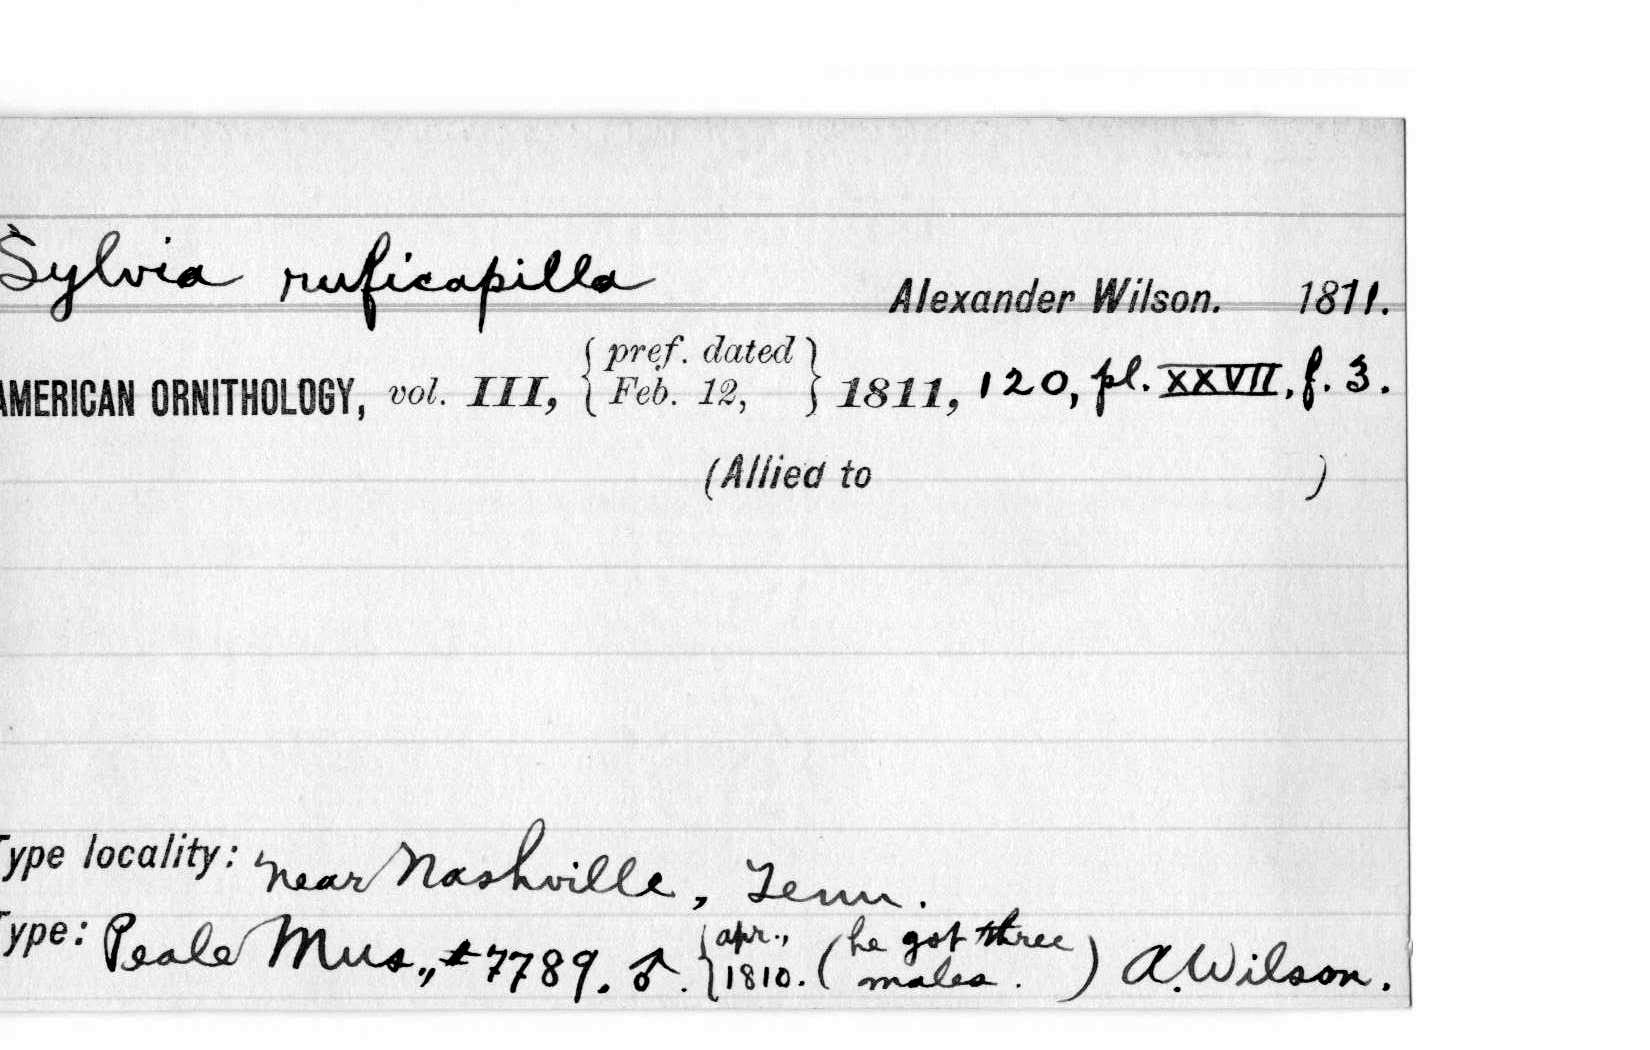 Sylvia ruficapilla
Alexander Wilson. 1811.
AMERICAN ORNITHOLOGY, vol. III, { pref. dated Feb. 12, } 1811, 120, pl. XXVII, f. 3.
(Allied to )
Type locality: near Nashville, Tenn.
Type: Peale Mus., #7789. ♂. { apr., 1810. (he got three males.) A. Wilson.